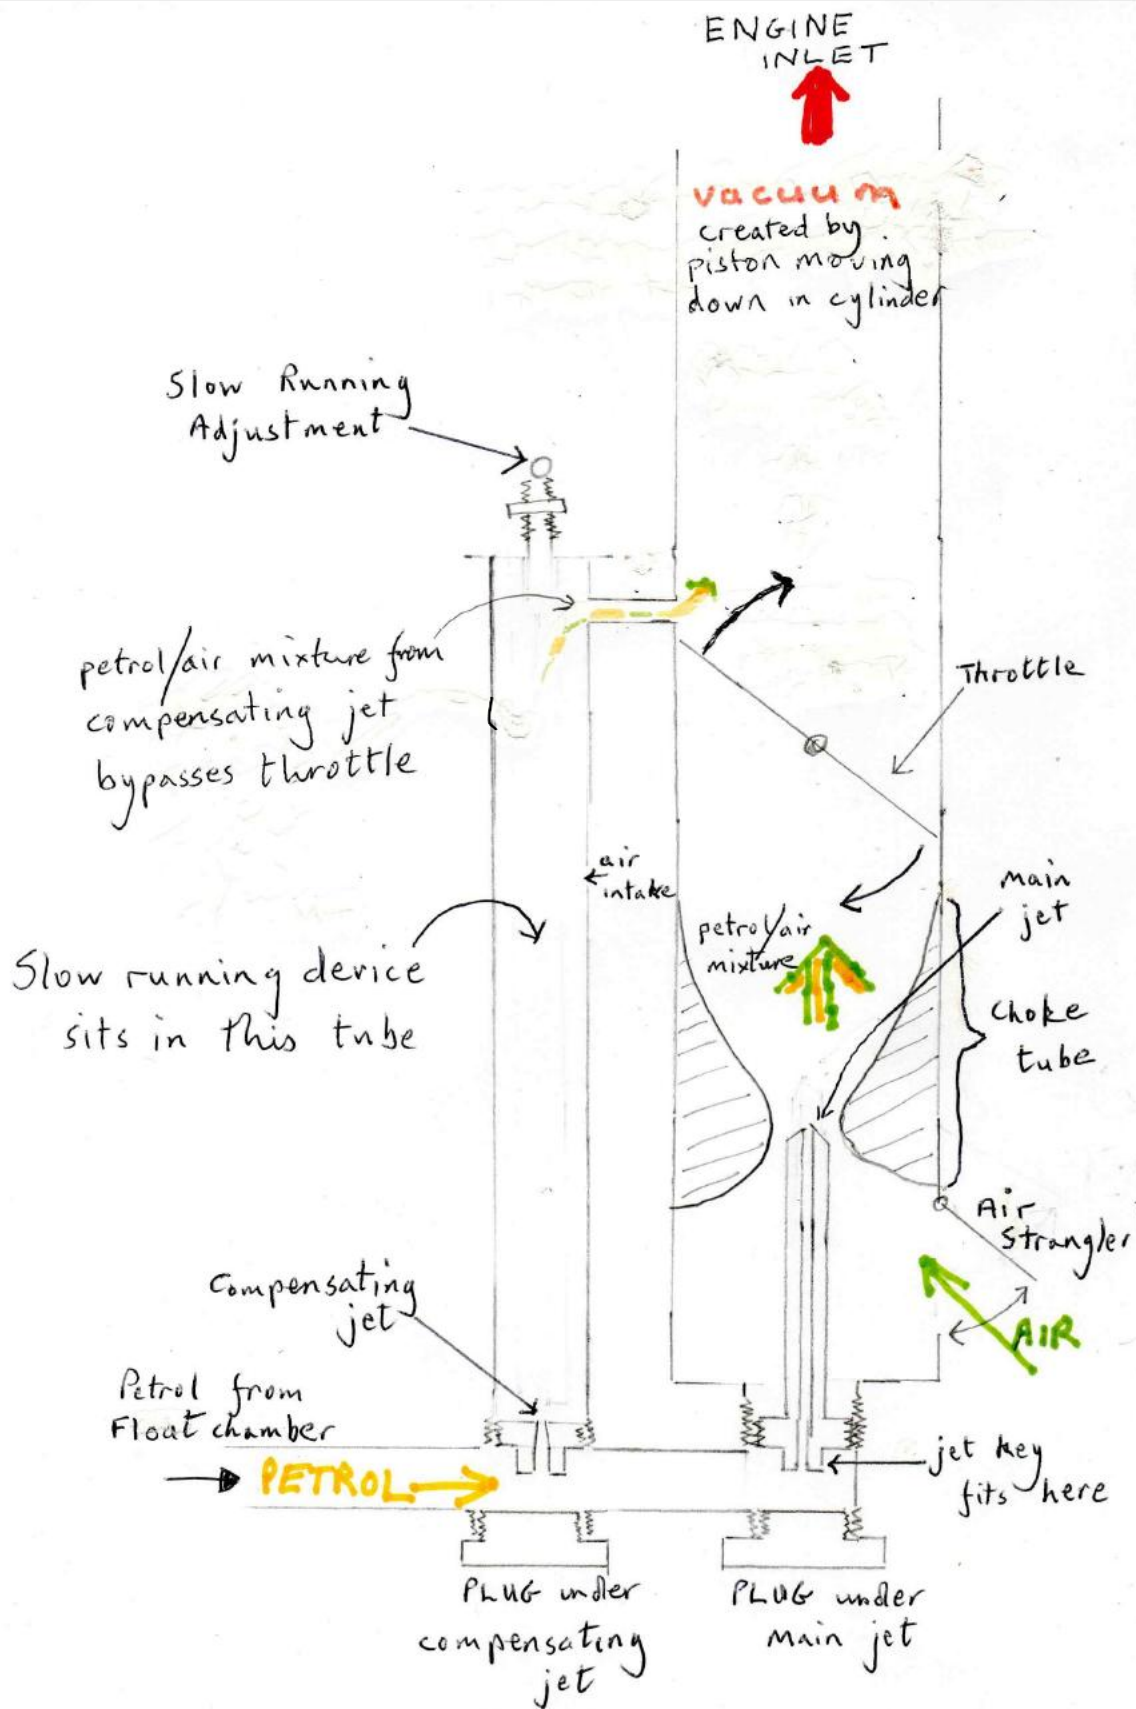 ENGINE
INLET
vacuum
created by
piston moving
down in cylinder
Slow Running
Adjustment
petrol/air mixture from
compensating jet
bypasses throttle
Throttle
air
intake
main
jet
petrol/air
mixture
Slow running device
sits in this tube
Choke
tube
Air
Strangler
AIR
Compensating
jet
Petrol from
Float chamber
PETROL
jet key
fits here
PLUG under
compensating
jet
PLUG under
Main jet